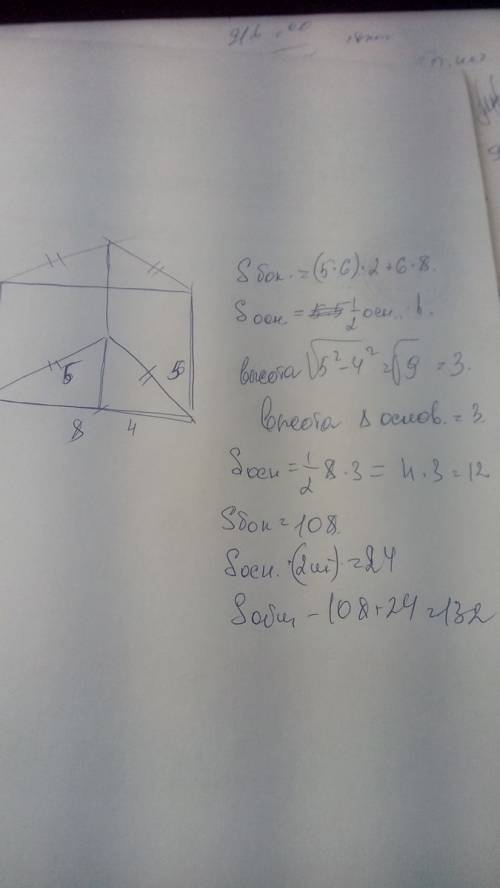 5
5
8
4
S бок. = (5·6)·2+6·8.
S осн. = 1/2 осн. · h.
высота √5²-4² = √9 = 3.
высота Δ основ. = 3.
S осн = 1/2 8·3 = 4·3 = 12
S бок = 108.
S осн. · (2шт) = 24
S общ - 108+24=132